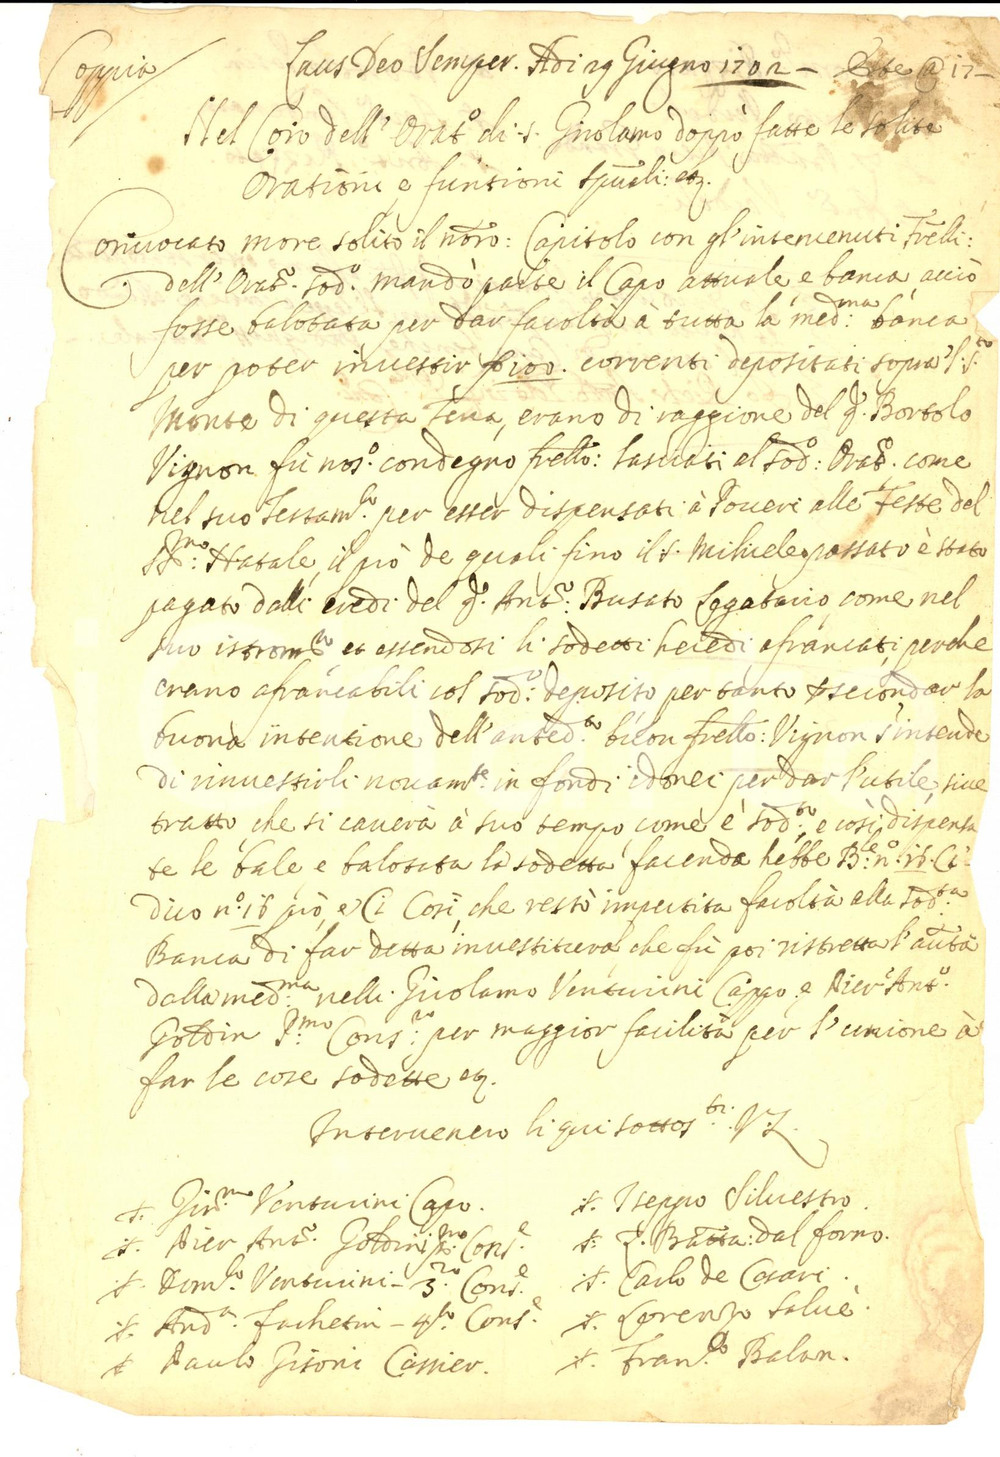 Coppia
Laus Deo Semper. Adi 29 Giugno 1702 – Este @ 17–
Nel Coro dell' Orat.º di .S. Girolamo doppò fatte le solite
Orationi e funtioni Sp̃uali: etz.
Conuocato more solito il nr̃o: Capitolo con gl'interuenuti Fr̃elli:
dell' Orat.º Sod.º mandò parte il Capo attuale e banca acciò
fosse balotata per dar facoltà à tutta la med:ma banca
per poter inuestir 100. correnti depositati sopra 'l S.to
Monte di questa Terra, erano di raggione del q. Bortolo
Vignon fù nos.º condegno frello: lasciati al Sod.º: Orat.º come
nel suo Testam.to per esser dispensati à Poueri alle Feste del
SS.mo: Natale, il prò de quali fino il S. Michiele passato è stato
pagato dalli eredi del q. Ant.º: Busato Legatario come nel
suo istrom.to et essendosi li sodetti heredi afrancati, perche
erano afrancabili col Sod.º: deposito per tanto secondar la
buona intentione dell' anted.to buon frello: Vignon s'intende
di rinuestirli nouam.te in fondi idonei per dar l'utile, siue
tratto che si cauerà à suo tempo come è sod.to, e così dispensa
te le bale e balotata la sodetta facenda hebbe B.le n.º 16. Ci
dico n.º 16 prò, e Ci Cosi, che restò impartita facoltà alla sod.ta
Banca di far detta inuestitura, che fù poi ristretta l'autà
dalla med:ma nelli Girolamo Venturini Cappo e Pier Ant.º
Goldin P.mo Cons.re per maggior facilità per l'unione à
far le cose sodette etz.
Interuenero li qui sottos.ti V.Z.
s. Gir.mo Venturini Capo.
s. Pier Ant.º Goldini p.mo Cons.e
s. Dom.co Venturini – 3.zo Cons.e
s. And.a Fachetin – 4.to Cons.e
s. Paulo Gisoni Cassier.
s. Iseppo Siluestro.
s. Z. Batta: dal forno.
s. Carlo de Cesari.
s. Lorenzo Saluè.
s. Fran.co Balan.